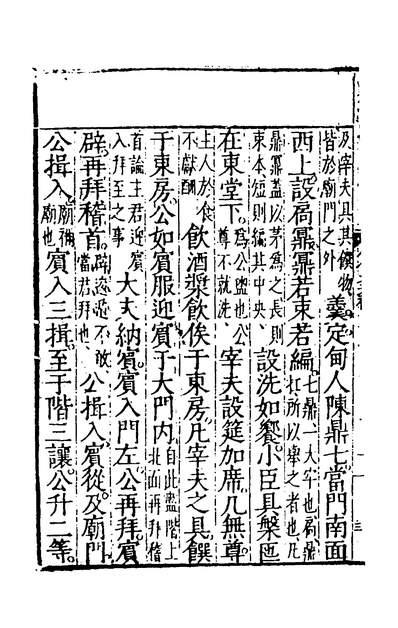 及宰夫具其饌物皆於廟門之外羹定甸人陳鼎七當門南面
西上設扃鼏鼏若束若編七鼎一大牢也扃鼎杠所以舉之者也凡
鼎鼏蓋以茅爲之長則束本短則編其中央設洗如饗小臣具槃匜
在東堂下爲公盥也公尊不就洗宰夫設筵加席几無尊
主人於食不獻酬飲酒漿飲俟于東房凡宰夫之具饌
于東房公如賓服迎賓于大門內自此盡階上北面再拜稽
首論主君迎賓入拜至之事大夫納賓賓入門左公再拜賓
辟再拜稽首辟逡遁不敢當君拜也公揖入賓從及廟門
公揖入廟禰廟也賓入三揖至于階三讓公升二等